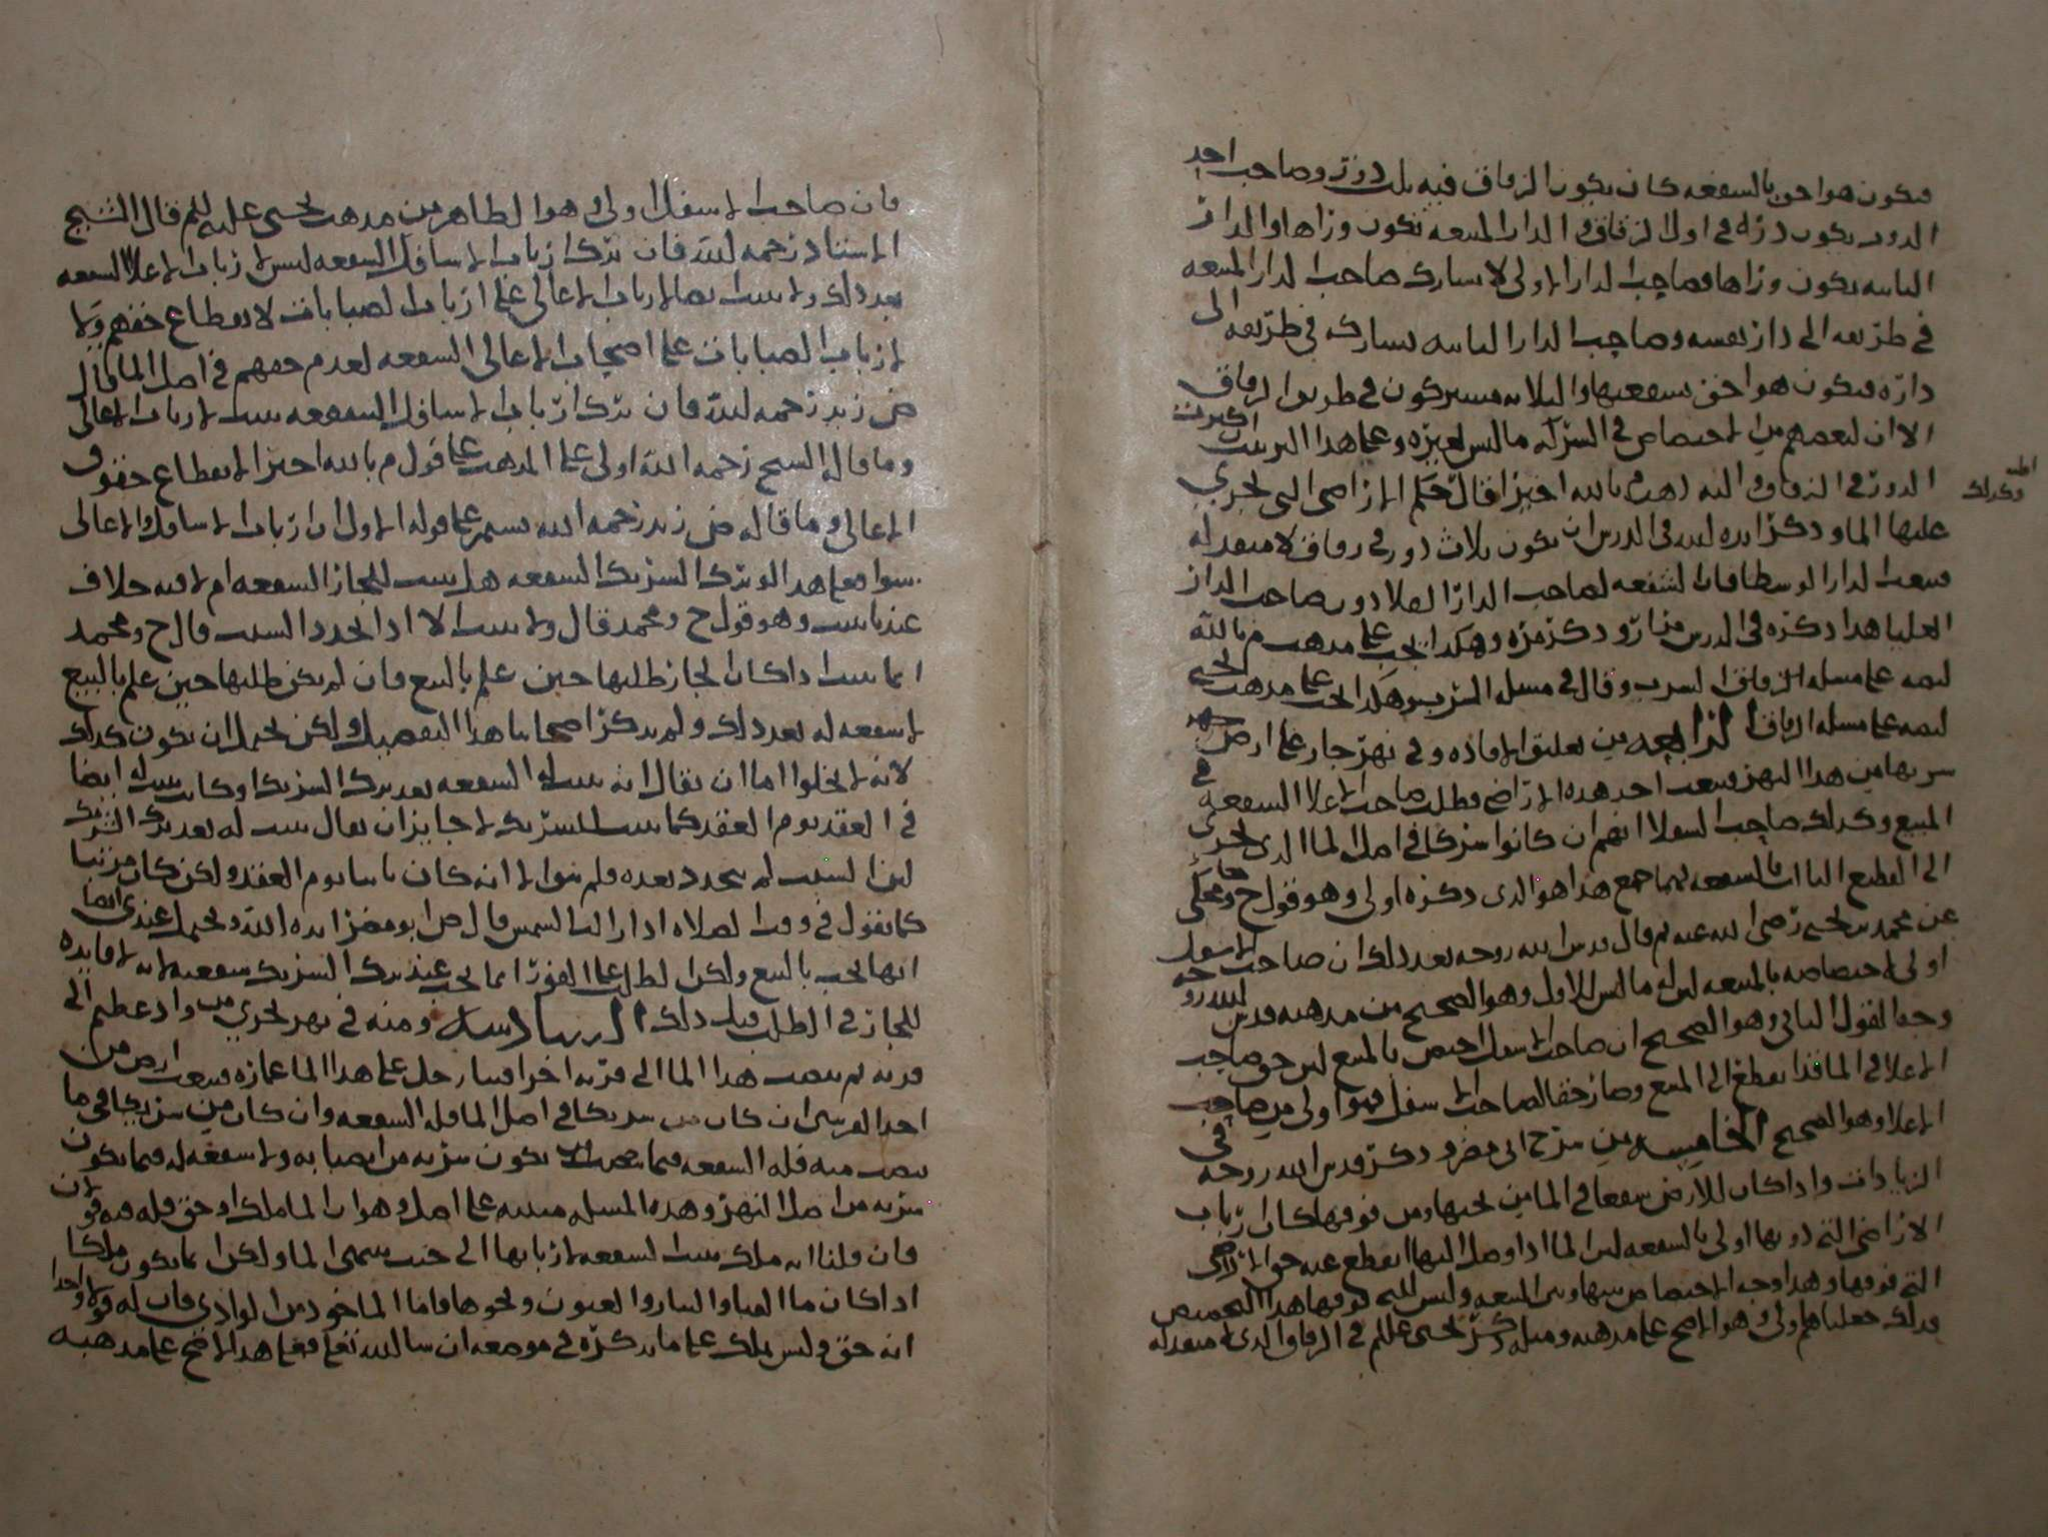 فيكون هو احق بالشفعه كان يكون الزقاق فيه ثلث دور وصاحب احد
الدور يكون داره في اول الزقاق و الدار المبيعه تكون وراها والدار
الثانيه تكون وراها فصاحب الدار الاولى لا يشارك صاحب الدار المبيعه
في طريقه الى دار نفسه وصاحب الدار الثانيه يشارك في طريقه الى
داره فيكون هو احق بشفعتها والثلاثه مشتركون في طريق الزقاق
الا ان لبعضهم من الاختصاص في الشركه ما ليس لغيره وعلى هذا الترتيب اكثرت
الدور في الزقاق واليه ذهب م بالله اخيرا قال حكم الاراضي التي يجري
وكذلك
عليها الما و ذكر ايده الله في الدرس ان يكون ثلاث دور في زقاق لا منفذ له
فبيعت الدار الوسطا فان الشفعه لصاحب الدار السفلا دون صاحب الدار
العليا هذا ذكره في الدرس مرارا وذكر مره وهكذا يجب على مذهب م بالله
ليصه على مسله الزقاق السرب وقال في مسله الشرب وهكذا يجب على مذهب يحيى
ليصه على مسله الزقاق الرابعه من تعليق الافاده و في نهر جار على ارض
شربها من هذا النهر فبيعت احد هذه الاراضي فطلب صاحب الاعلا الشفعه في
المبيع وكذلك صاحب السفلا انهم ان كانوا شركا في اصل الما الذي يجري
الى القطع الثلاث فالشفعه لهما جميعا هذا هو الذي ذكره اولى وهو قول ح وحكى
عن محمد بن يحيى رضي الله عنه ثم قال قدس الله روحه بعد ذلك ان صاحب الاسفل
اولى لاختصاصه بالمبيعه ليس له ما ليس للاول وهو الصحيح من مذهبه قدس الله روحه
وجه القول الثاني وهو الصحيح ان صاحب الاسفل اخص بالمبيع لان حق صاحب
الاعلا في الما قد انقطع الى المبيع وصار حقا لصاحب الاسفل فهو اولى من صاحب
الاعلا وهو الصحيح الخامسه من شرح ابي مضر و ذكر قدس الله روحه في
الزيادات واذا كان للارض شفعا في الما من تحتها ومن فوقها كان ارباب
الاراضي التي دونها اولى بالشفعه لان الما اذا وصل اليها انقطع عنه حق الاراضي
التي فوقها وهذا وجه الاختصاص بينها وبين المبيعه وليس للتي فوقها هذا التخصيص
فلذلك جعلناهم اولى وهو الاصح على مذهبه ومثله ذكر يحيى عللم في الزقاق الذي لا منفذ له
فان صاحب الاسفل اولى وهو الظاهر من مذهب يحيى عليه السلم قال الشيخ
الاستاد رحمه الله فان ترك ارباب الاسافل الشفعه ليس لارباب الاعلا الشفعه
بعد ذلك ولا يثبت ايضا لارباب الاعالي على ارباب الصبابات لانقطاع حقهم ولا
لارباب الصبابات على اصحاب الاعالي الشفعه لعدم حقهم في اصل الما قال
ض زيد رحمه الله فان ترك ارباب الاسافل الشفعه يثبت لارباب الاعالي
وما قاله الشيخ رحمه الله اولى على المذهب على قول م بالله اخيرا لانقطاع حقوق
الاعالي وما قاله ض زيد رحمه الله يستمر على قوله الاول ان ارباب الاسافل والاعالي
سوا فعلى هذا لو ترك الشريك الشفعه هل يثبت للجار الشفعه ام لا فيه خلاف
عندنا يثبت وهو قول ح ومحمد قال ولا يثبت الا اذا تجدد السبب قال ح ومحمد
انما يثبت اذا كان الجار طلبها حين علم بالبيع فان لم يكن طلبها حين علم بالبيع
لا شفعه له بعد ذلك ولم يذكر اصحابنا هذا التفصيل ولكن يحتمل ان يكون كذلك
لانه لا يخلوا اما ان يقال انه يثبت له الشفعه بعد ترك الشريك او كان يثبت له ايضا
في العقد يوم العقد كما يثبت للشريك لا جايز ان يقال يثبت له بعد ترك الشريك
لان السبب لم يتجدد بعده فلم يبق الا انه كان ثابتا يوم العقد ولكن كان مرتبا
كما نقول في وقت الصلاه اذا زالت الشمس قال ض ابو مضر ايده الله ويحتمل عندي ايضا
انها تجب بالبيع ولكن الطلب على الفور انما يجب عند ترك الشريك شفعته لانه لا فايده
للجار في الطلب قبل ذلك السادسه ومنه في نهر يجري من واد عظيم الى
قريه ثم ينصب هذا الما الى قريه اخرا فبنا رحل على هذا الما عماره فبيعت ارض من
احد القريتين ان كان من شريكا في اصل الما فله الشفعه وان كان من شريكا في ما
ينصب منه فله الشفعه فيما يكون شربه من انصبابه ولا شفعه له فيما يكون
شربه من اصل النهر وهذه المسله مبنيه على اصل وهو ان الما ملك او حق فله فيه قولان
فان قلنا انه ملك يثبت الشفعه لاربابها الى حيث يسمى الما ولكن انما يكون ملكا
اذا كان ما القنا والابار والعيون ونحوها فاما الما خود من الوادي فان له قولا واحدا
انه حق وليس بملك على ما نذكره في موضعه ان شا الله تعلى فعلى هذا الاصح على مذهبه